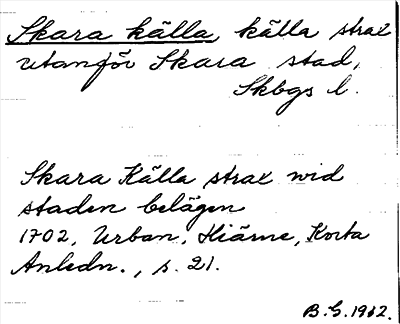 Skara källa, källa strax
utanför Skara stad,
Skbgs l.
Skara Källa strax wid
staden belägen
1702, Urban, Hiärne, Korta
Anledn., s. 21.
B.G. 1962.